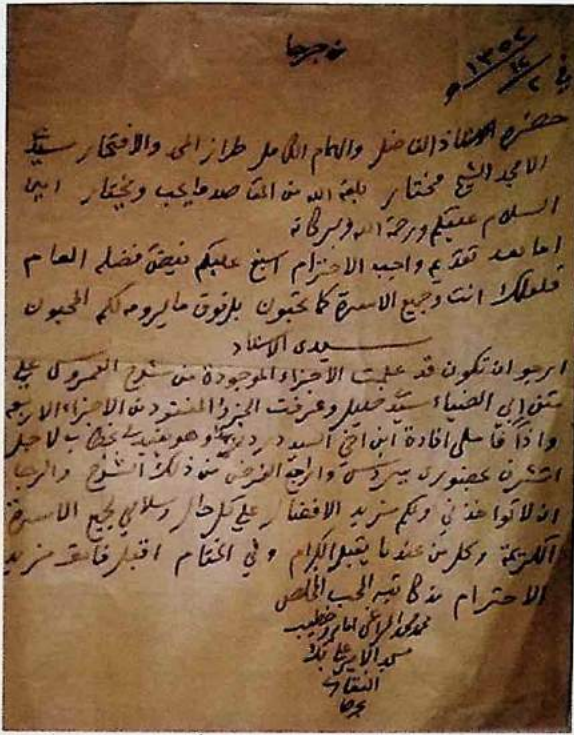 من جرجا
في ٢ / ١٢ / ١٣٥٢ هـ
حضرة الاستاذ الفاضل والهمام الكامل طراز المجد والافتخار سيدي
الامجد الشيخ مختار بلغه الله من المقاصد ما يحب ويختار امين
السلام عليكم ورحمة الله وبركاته
اما بعد تقديم واجب الاحترام اسبغ عليكم فيض فضله العام
فلعلك انت وجميع الاسرة كما تحبون بل فوق ما يرومه لكم المحبون
سيدى الاستاذ
ارجو ان تكون قد علمت الاجزاء الموجودة من شرح العمروسى على
متن ابي الضياء سيدي خليل وعرفت الجزء المفقود من الاجزاء الاربعة
واذا فاسلى افادة ابن اخي السيد دردير وهو بخطاب لاجل
اتشرف بحضورى واراجع الغرض من ذلك الشرح والرجا
ان لا تواخذني ولكم مزيد الافضال على كل حال وسلامي لجميع الاسرة
الكريمة وكل من عندنا يقبل الكرام وفي الختام اقبل فائق مزيد
الاحترام من كاتبه المحب المخلص
محمد محمد المراغى امام وخطيب
مسجد الامير على بك
الفقارى
بجرجا